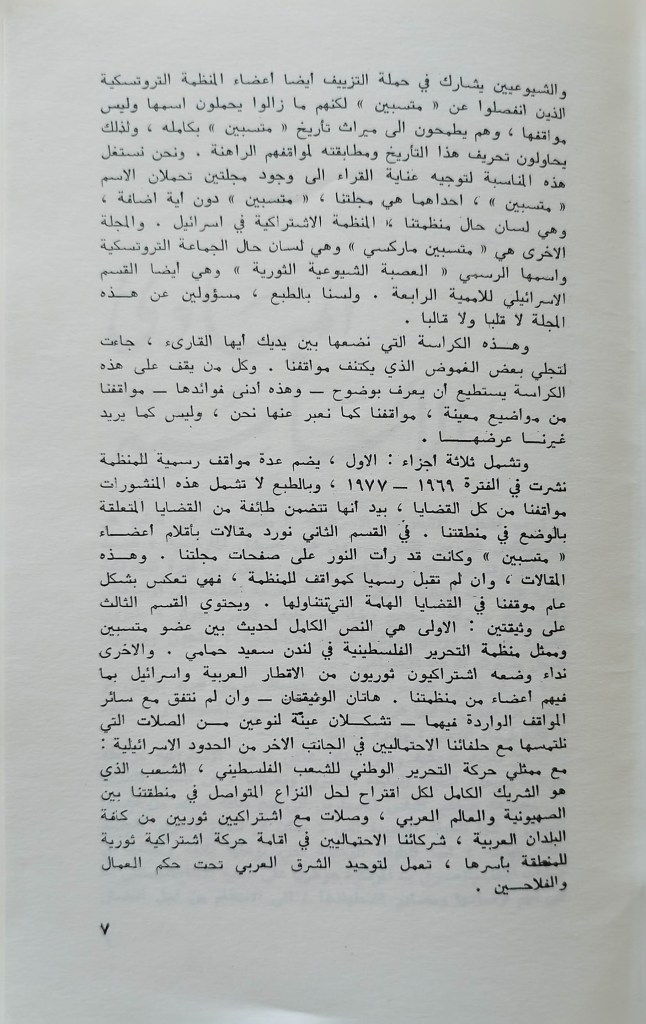 والشيوعيين يشارك في حملة التزييف أيضا أعضاء المنظمة التروتسكية
الذين انفصلوا عن « متسبين » لكنهم ما زالوا يحملون اسمها وليس
مواقفها ، وهم يطمحون الى ميراث تأريخ « متسبين » بكامله ، ولذلك
يحاولون تحريف هذا التأريخ ومطابقته لمواقفهم الراهنة . ونحن نستغل
هذه المناسبة لتوجيه عناية القراء الى وجود مجلتين تحملان الاسم
« متسبين » ، احداهما هي مجلتنا ، « متسبين » دون أية اضافة ،
وهي لسان حال منظمتنا ، المنظمة الاشتراكية في اسرائيل . والمجلة
الاخرى هي « متسبين ماركسي » وهي لسان حال الجماعة التروتسكية
واسمها الرسمي « العصبة الشيوعية الثورية » وهي أيضا القسم
الاسرائيلي للاممية الرابعة . ولسنا بالطبع ، مسؤولين عن هـــذه
المجلة لا قلبا ولا قالبا .
وهـــذه الكراسة التي نضعها بين يديك أيها القارىء ، جاءت
لتجلي بعض الغموض الذي يكتنف مواقفنا . وكل من يقف على هذه
الكراسة يستطيع أن يعرف بوضوح — وهذه أدنى فوائدها — مواقفنا
من مواضيع معينة ، مواقفنا كما نعبر عنها نحن ، وليس كما يريد
غيرنـــا عرضهـــا .
وتشمل ثلاثة أجزاء : الاول ، يضم عدة مواقف رسمية للمنظمة
نشرت في الفترة ١٩٦٩ — ١٩٧٧ ، وبالطبع لا تشمل هذه المنشورات
مواقفنا من كل القضايا ، بيد أنها تتضمن طائفة من القضايا المتعلقة
بالوضع في منطقتنا . في القسم الثاني نورد مقالات بأقلام أعضـــاء
« متسبين » وكانت قد رأت النور على صفحات مجلتنا . وهـــذه
المقالات ، وان لم تقبل رسميا كمواقف للمنظمة ، فهي تعكس بشكل
عام موقفنا في القضايا الهامة التي تتناولها . ويحتوي القسم الثالث
على وثيقتين : الاولى هي النص الكامل لحديث بين عضو متسبين
وممثل منظمة التحرير الفلسطينية في لندن سعيد حمامي . والاخرى
نداء وضعه اشتراكيون ثوريون من الاقطار العربية واسرائيل بما
فيهم أعضاء من منظمتنا . هاتان الوثيقتان — وان لم نتفق مع سائر
المواقف الواردة فيهما — تشكـــلان عينة لنوعين مـــن الصلات التي
نلتمسها مع حلفائنا الاحتماليين في الجانب الاخر من الحدود الاسرائيلية :
مع ممثلي حركة التحرير الوطني للشعب الفلسطيني ، الشعب الذي
هو الشريك الكامل لكل اقتراح لحل النزاع المتواصل في منطقتنا بين
الصهيونية والعالم العربي ، وصلات مع اشتراكيين ثوريين من كافة
البلدان العربية ، شركائنا الاحتماليين في اقامة حركة اشتراكية ثورية
للمنطقة بأسرها ، تعمل لتوحيد الشرق العربي تحت حكم العمال
والفلاحـــين .
٧